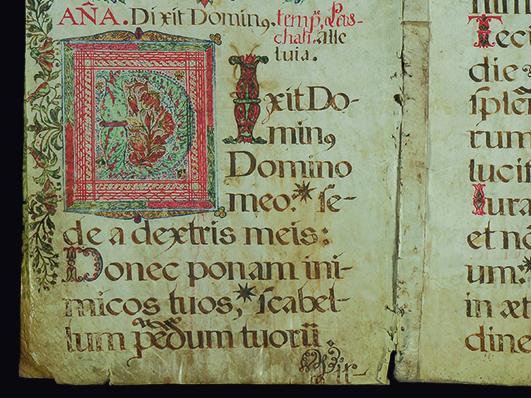 AÑA. Dixit Dominꝯ. temp̃. Pas-
chali. alle
luia.
DIxit Do-
minꝯ
Domino
meo:* ſe-
de a dextris meis:
Donec ponam ini-
micos tuos,* ſcabel-
lum pedum tuorũ.
Tecu
die
ſplē
rum
lucif
Iura
et nō
um:*
in æt
dine